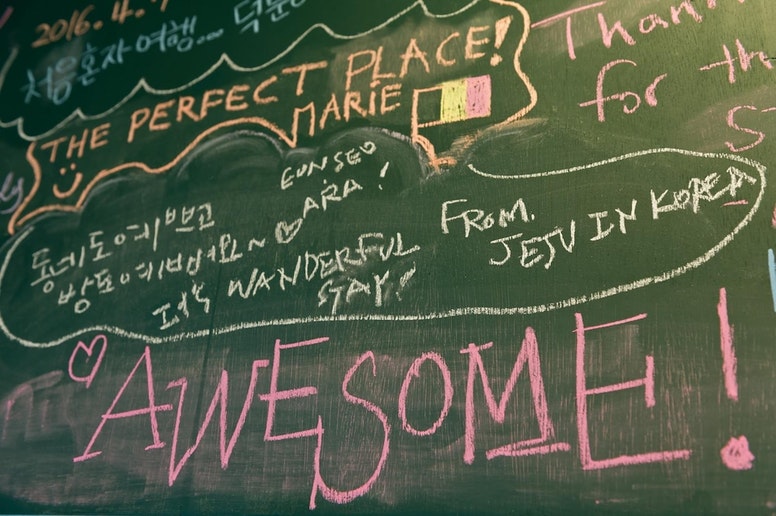 2016. 4. 7
처음 혼자 여행... 덕분
THE PERFECT PLACE!
MARIE
Than
for th
EUNSEO
ARA!
동네도 예쁘고
방도 예쁘네요~
It's WANDERFUL
STAY!
FROM.
JEJU IN KOREA
AWESOME!